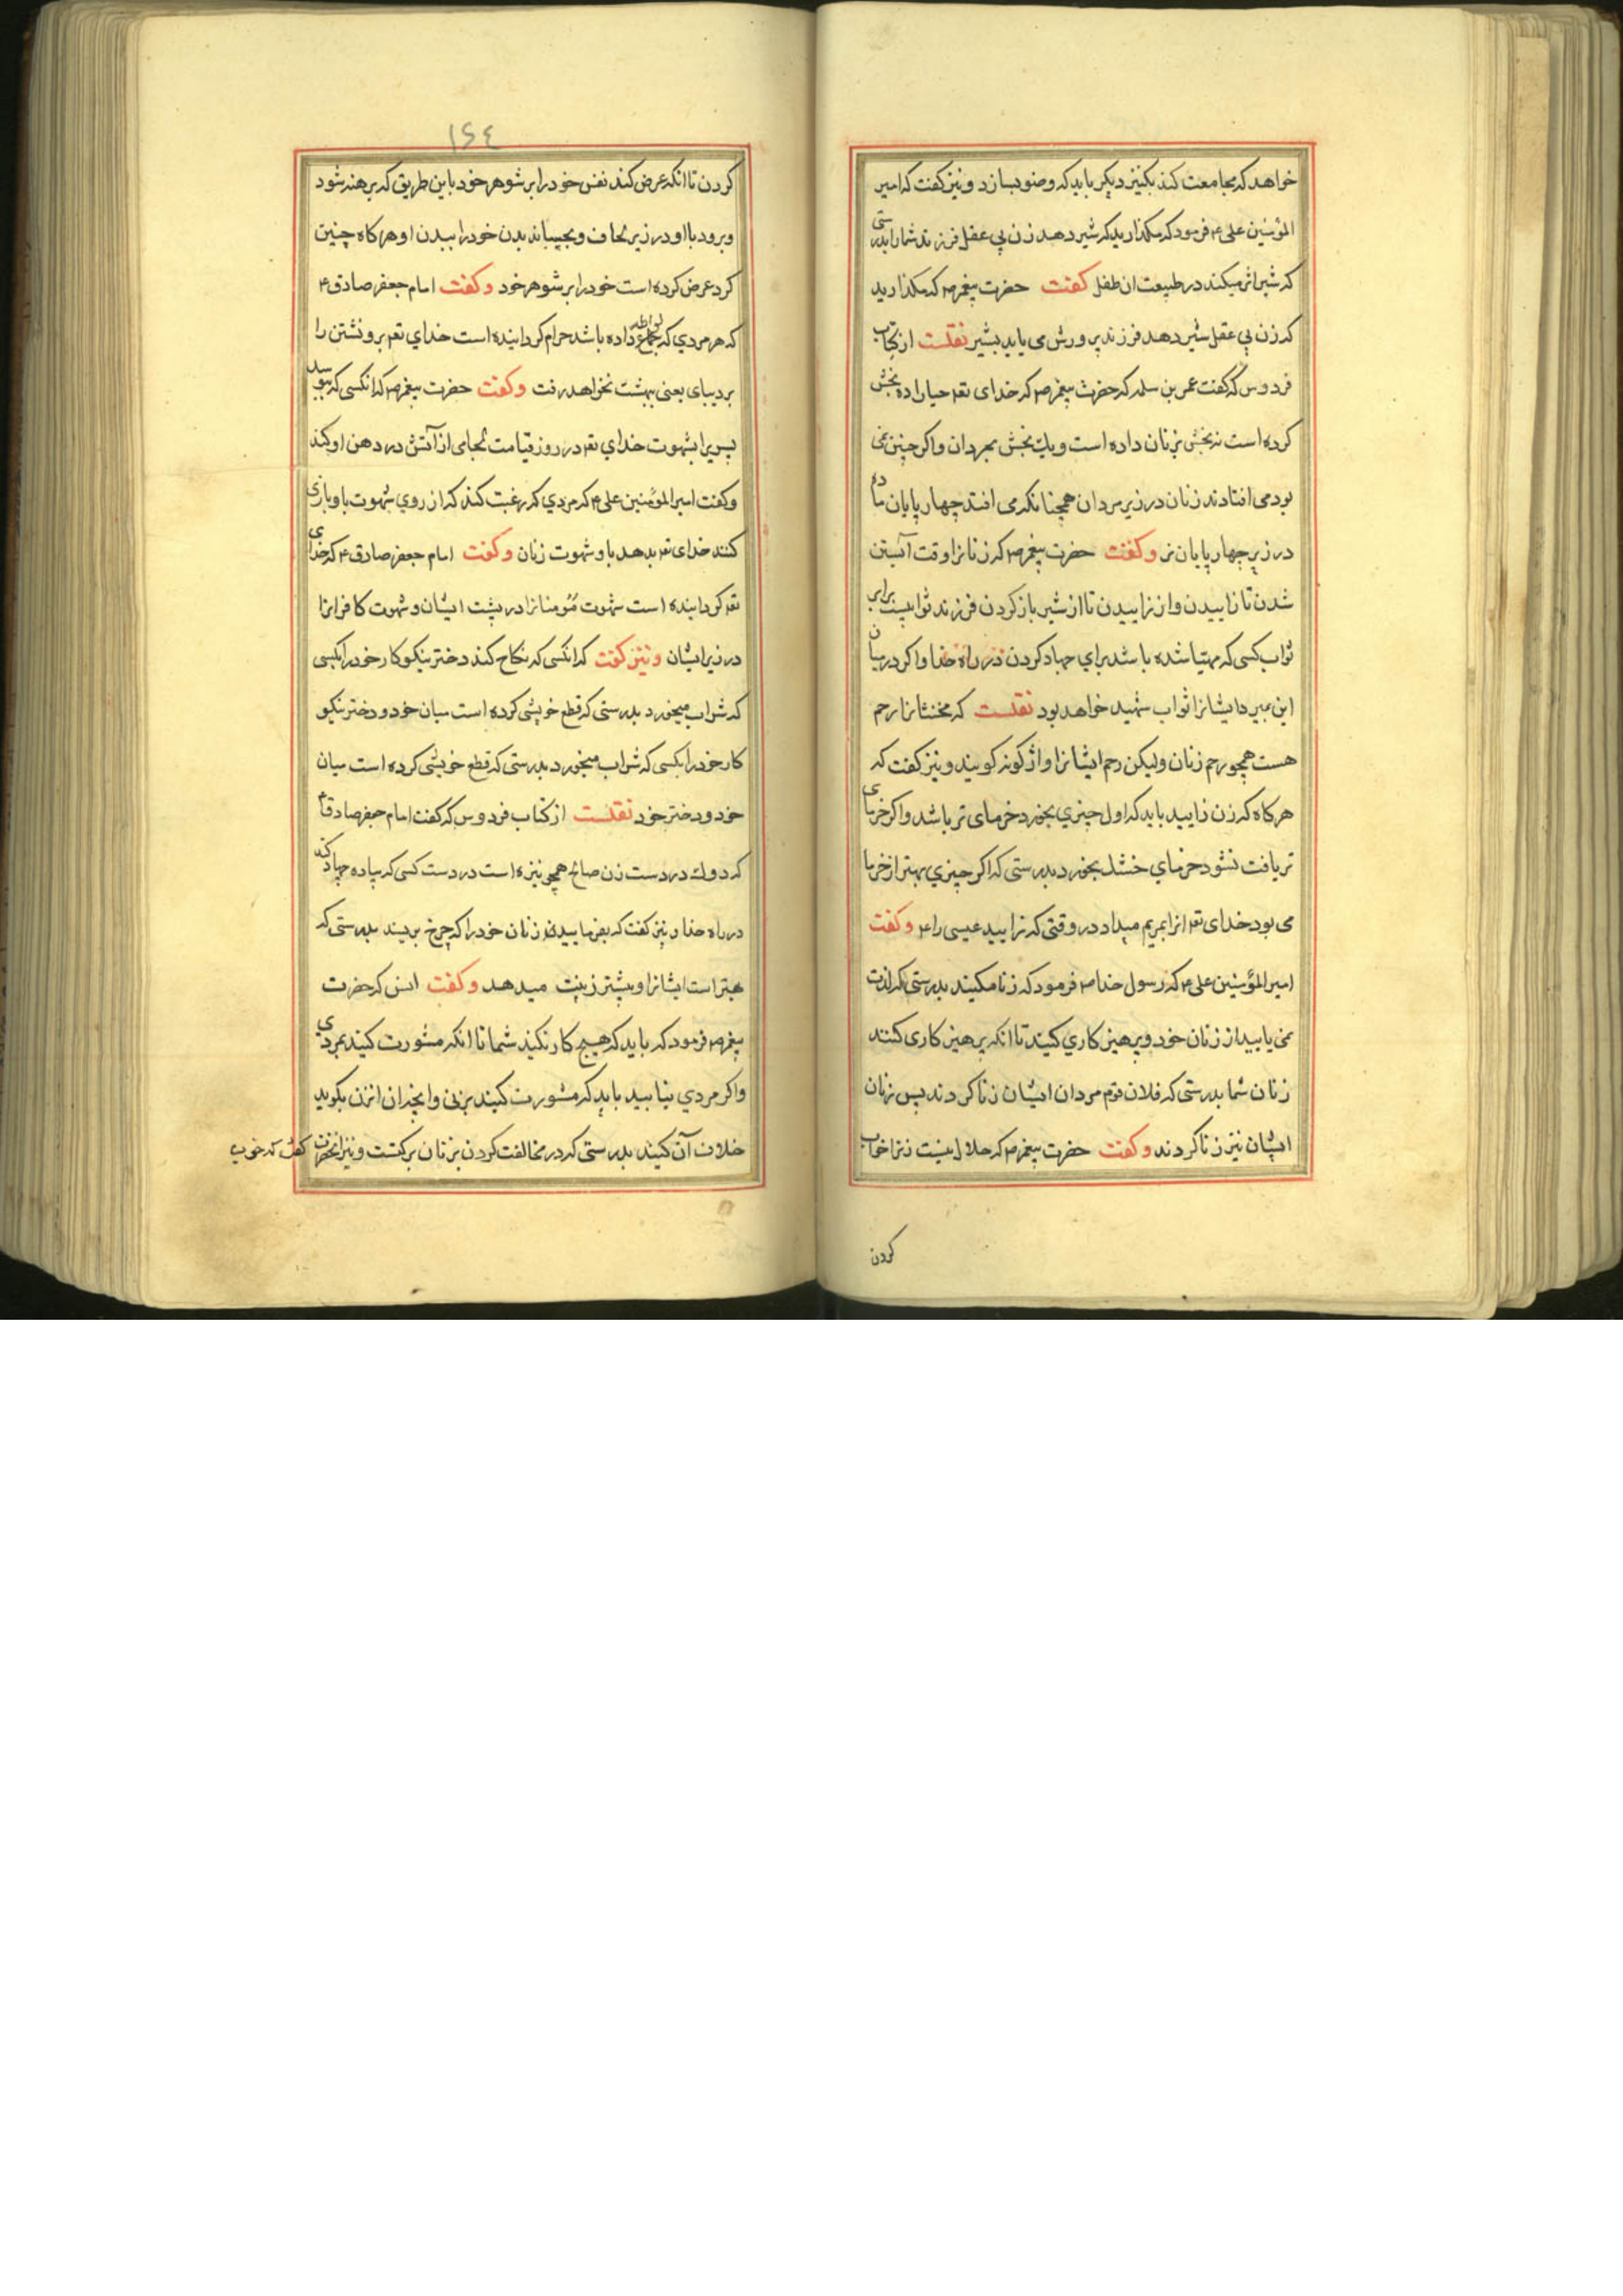 خواهد که مجامعت کند بکنیز دیکر باید که وضو بسازد و نیز کفت که امیر
المؤمنین علی ع فرمود که مکذارید که شیر دهد زن بی عقل فرزند شما را بدرستی
که شیر اثر میکند در طبیعت ان طفل کفت حضرت پیغمبر ص که مکذارید
که زن بی عقل شیر دهد فرزند پرورش می یابد بشیر نقلست از کتاب
فردوس که کفت عمر بن سلمه که حضرت پیغمبر ص که خدای تعه حیا را ده بخش
کرده است نه بخش بزنان داده است و یک بخش بمردان و اکر چنین نمی
بود می افتادند زنان در زیر مردان همچنانکه می افتد چهار پایان ماده
در زیر چهار پایان نر و کفت حضرت پیغمبر ص که زنانرا وقت آبستن
شدن تا زاییدن و از زاییدن تا از شیر باز کردن فرزند ثوابیست برابر
ثواب کسی که مهیا شده باشد برای جهاد کردن در راه خدا و اکر در میان
این بمیرد ایشانرا ثواب شهید خواهد بود نقلست که مخنثانرا رحم
هست همچو رحم زنان ولیکن رحم ایشانرا واژکونه کویند و نیز کفت که
هرکاه که زن زایید باید که اول چیزی بخورد خرمای تر باشد و اکر خرمای
تر یافت نشود خرمای خشک بخورد بدرستی که اکر چیزی بهتر از خرما
می بود خدای تعه انرا بمریم میداد در وقتی که زایید عیسی را ع و کفت
امیر المؤمنین علی ع که رسول خدا ص فرمود که زنا مکنید بدرستی که لذت
نمی یابید از زنان خود و پرهیز کاری کنید تا انکه پرهیز کاری کنند
زنان شما بدرستی که فلان قوم مردان ایشان زنا کردند پس زنان
ایشان نیز زنا کردند و کفت حضرت پیغمبر ص که حلال نیست زنرا خواب
کردن
۱۶۴
کردن تا انکه عرض کند نفس خود را بر شوهر خود باین طریق که برهنه شود
و برود با او در زیر لحاف و بچسپاند بدن خود را ببدن او هرکاه چنین
کرد عرض کرده است خود را بر شوهر خود و کفت امام جعفر صادق ع
که هر مردی که بجماع لواطه داده باشد حرام کردانیده است خدای تعه بر و نشتن را
بر دیبای یعنی بهشت نخواهد رفت و کفت حضرت پیغمبر ص که انکسی که ببوسد
پسریرا بشهوت خدای تعه در روز قیامت لجامی از آتش در دهن او کند
و کفت امیر المؤمنین علی ع که مردی که رغبت کند که از روی شهوت باو بازی
کنند خدای تعه بدهد باو شهوت زنان و کفت امام جعفر صادق ع که خدای
تعه کردانیده است شهوت مؤمنانرا در پشت ایشان و شهوت کافرانرا
در زیر ایشان و نیز کفت که انکسی که نکاح کند دختر نیکو کار خود را بکسی
که شراب میخورد بدرستی که قطع خویشی کرده است میان خود و دختر نیکو
کار خود را بکسی که شراب میخورد بدرستی که قطع خویشی کرده است میان
خود و دختر خود نقلست از کتاب فردوس که کفت امام جعفر صادق ع
که دوک در دست زن صالح همچو نیزه است در دست کسی که پیاده جهاد کند
در راه خدا و نیز کفت که بفرمایید زنان خود را که چرخ بریسند بدرستی که
بهتر است ایشانرا و بیشتر زینت میدهد و کفت انس که حضرت
پیغمبر ص فرمود که باید که هیچ کار نکنید شما تا انکه مشورت کنید بمردی
و اکر مردی نیابید باید که مشورت کنید بزنی و انچه ان انزن بکوید
خلاف آن کنید بدرستی که در مخالفت کردن بزنان برکتست و نیز انحضرت کفت که خوب